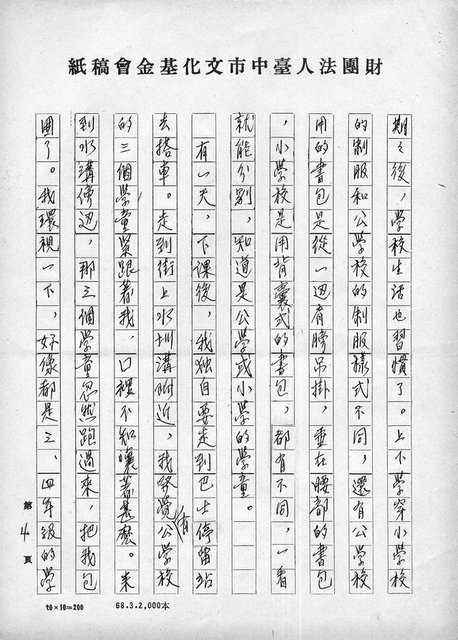 財團法人臺中市文化基金會稿紙
期之後，學校生活也習慣了。上下學穿小學校
的制服和公學校的制服樣式不同，還有公學校
用的書包是從一邊肩膀吊掛，垂在腰部的書包
，小學校是用背囊式的書包，都有不同，一看
就能分別，知道是公學或小學的學童。
有一天，下課後，我獨自要走到巴士停留站
去搭車。走到街上水圳溝附近，我發覺有公學校
的三個學童緊跟著我，口裡不知嚷著甚麼。來
到水溝傍边，那三個學童忽然跑過來，把我包
圍了。我環視一下，好像都是三、四年級的學
第4頁
20×10=200 68.3.2,000本